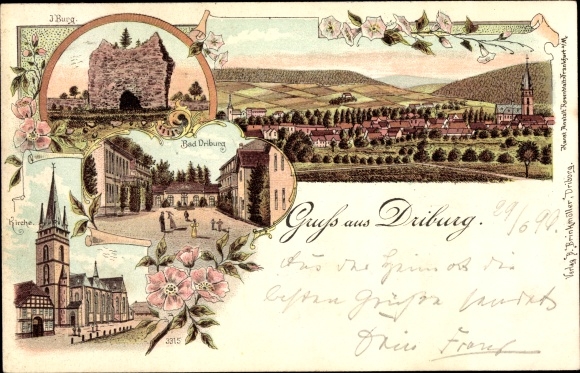 J'Burg.
Bad Driburg
Kirche.
Gruss aus Driburg.
29/6 98
Aus der Heimat die
besten Grüße sendet
Dein Franz
3315
Kunst Anstalt Rosenblatt Frankfurt a/M.
Verlag B. Brinkmöller, Driburg.